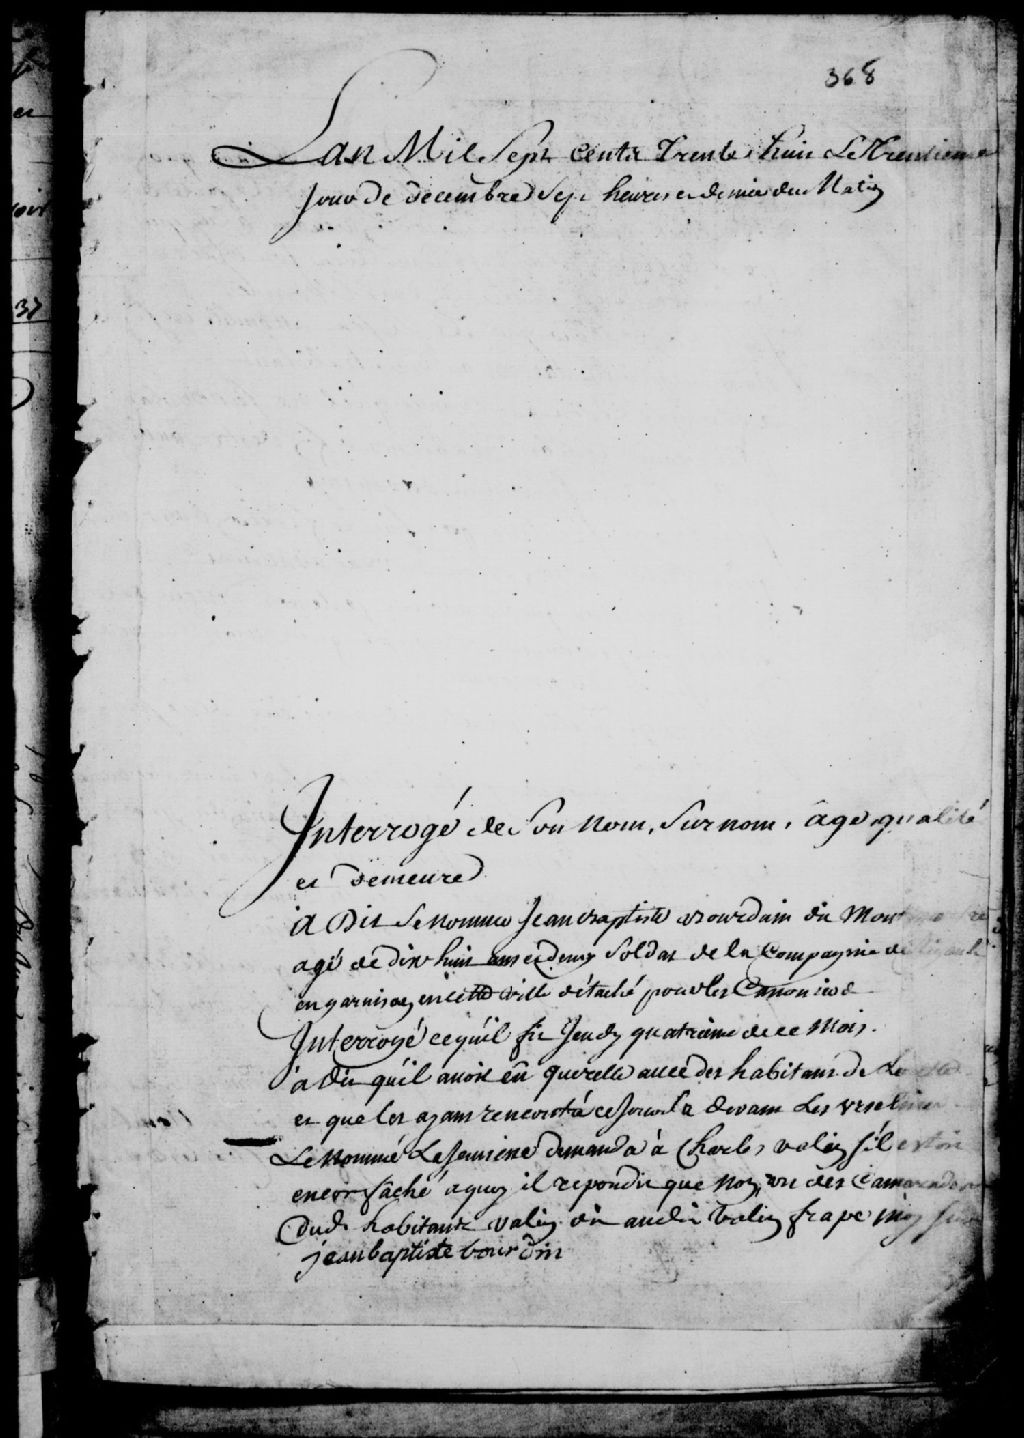 368
Lan Mil Sept Cents Trente huit Le Trentieme
Jour de decembre Sept heures et demie du Matin
Interrogé de Son nom, Surnom, âge, qualité
et demeure
A Dit Se nommer Jean Baptiste Bourdain dit
agé de dix huit ans et demy Soldat de la Compagnie de
en garnison en cette ville détaché pour les Canonier
Interrogé ce qu'il fit Jeudy quatrieme de ce Mois.
a dit qu'il avoit eû querelle avec des habitans de
et que les ayant rencontré ce Jour la devant Les
Le Nommé demanda à Charles valin s'il estoit
encor faché a quoy il repondit que Non, un des Camarades
Dud. habitant valin dit audit valin frape
jean baptiste bourdin
37